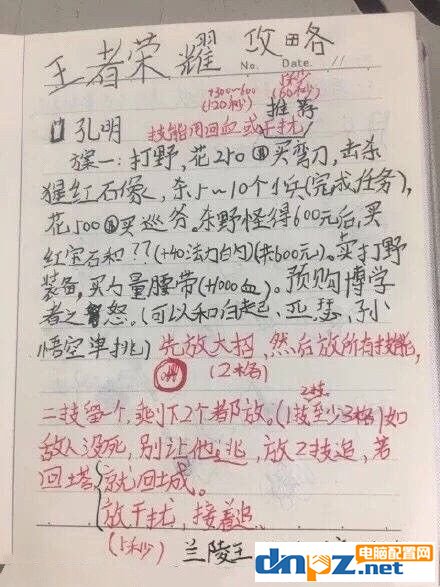 王者荣耀 攻略
No. Date. 11
+300~600 15秒
(120秒) (60秒)
推荐
孔明 技能用回血或干扰
方案一:打野,花250买弯刀,击杀
猩红石像,杀5~10个小兵(完成任务),
花500买巡守。杀野怪得600元后,买
红宝石和??(+40法力)(共600元)。卖打野
装备,买力量腰带(+1000血)。预购博学
者之怒。(可以和白起、亚瑟、孙
悟空单挑)先放大招,然后放所有技能,
(2格)
2技
二技留一个,剩下2个都放。(1技至少3格)如
敌人没死,别让他逃,放2技追,若
回塔就回城。
放干扰,接着追
(15秒) 兰陵王
电脑配置网
dnpz.net